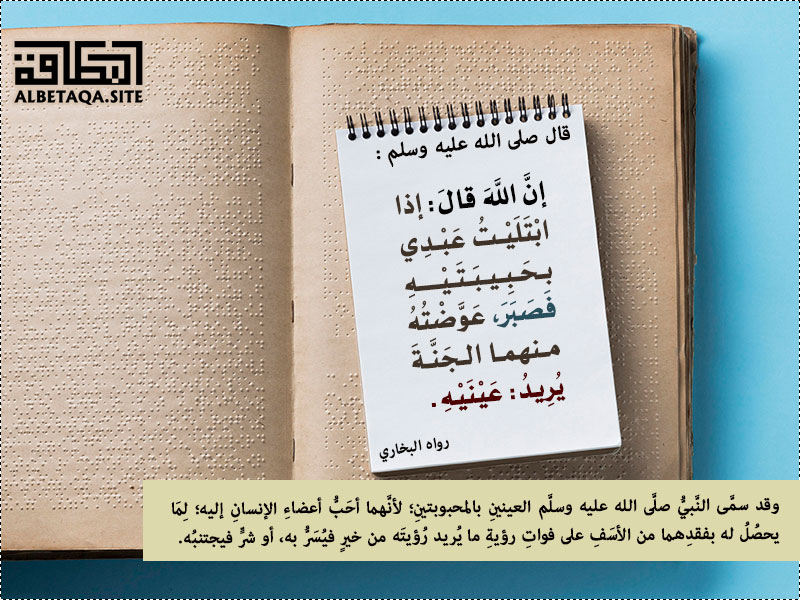 البطاقة
ALBETAQA.SITE
قال صلى الله عليه وسلم :
إنَّ اللَّهَ قالَ: إذا
ابْتَلَيْتُ عَبْدِي
بحَبِيبَتَيْهِ
فَصَبَرَ، عَوَّضْتُهُ
منهما الجَنَّةَ
يُرِيدُ: عَيْنَيْهِ.
رواه البخاري
وقد سمَّى النَّبيُّ صلَّى الله عليه وسلَّم العينينِ بالمحبوبتينِ؛ لأنَّهما أحَبُّ أعضاءِ الإنسانِ إليه؛ لِمَا
يحصُلُ له بفقدِهما من الأسَفِ على فواتِ رؤيةِ ما يُريد رُؤيتَه من خيرٍ فيُسَرُّ به، أو شرٍّ فيجتنبُه.